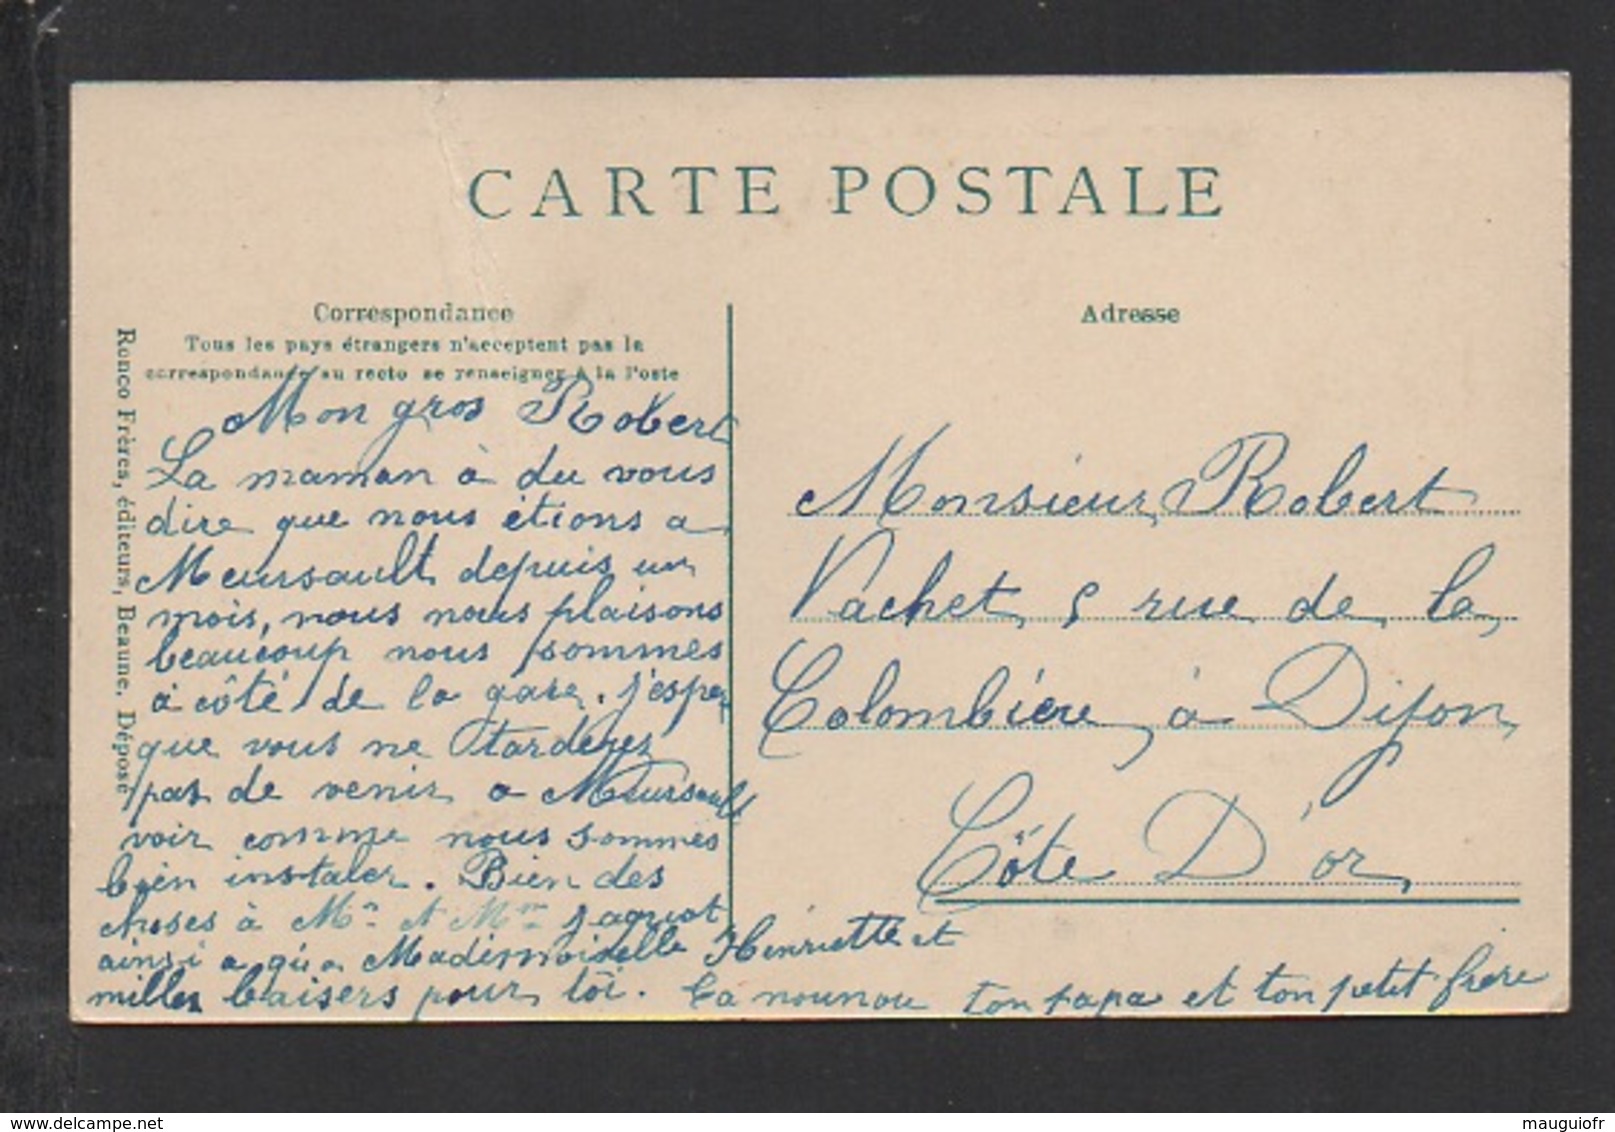 CARTE POSTALE
Correspondance
Tous les pays étrangers n'acceptent pas la
correspondance au recto se renseigner à la Poste
Ronco Frères, éditeurs, Beaune, Déposé
Mon gros Robert
La maman à du vous
dire que nous étions a
Meursault depuis un
mois, nous nous plaisons
beaucoup nous sommes
à côté de la gare. j'esper
que vous ne tarderez
pas de venir a Meursault
voir comme nous sommes
bien instaler. Bien des
choses à Mr et Mme Jaquot
ainsi a qu'a Mademoiselle Henriette et
milles baisers pour toi. ta nounou ton papa et ton petit frère
Adresse
Monsieur Robert
Vachet, 5 rue de la
Colombière, à Dijon
Côte D'or,
www.delcampe.net
mauguiofr